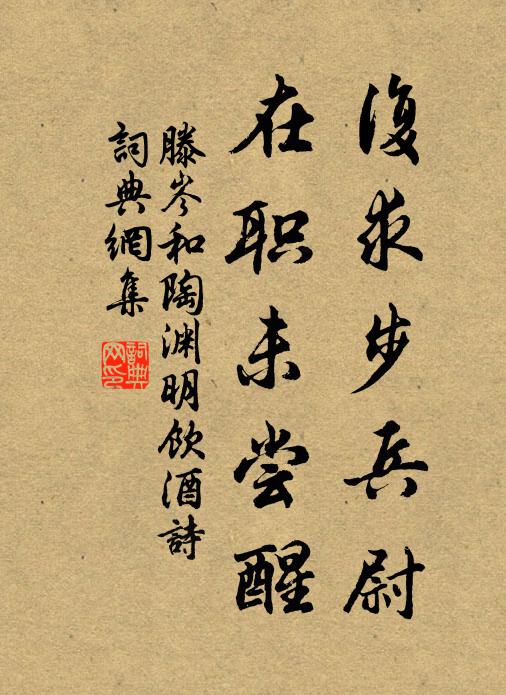 復求步兵尉
在职未尝醒
滕岑和陶渊明饮酒詩
詞典網集
詞典網印